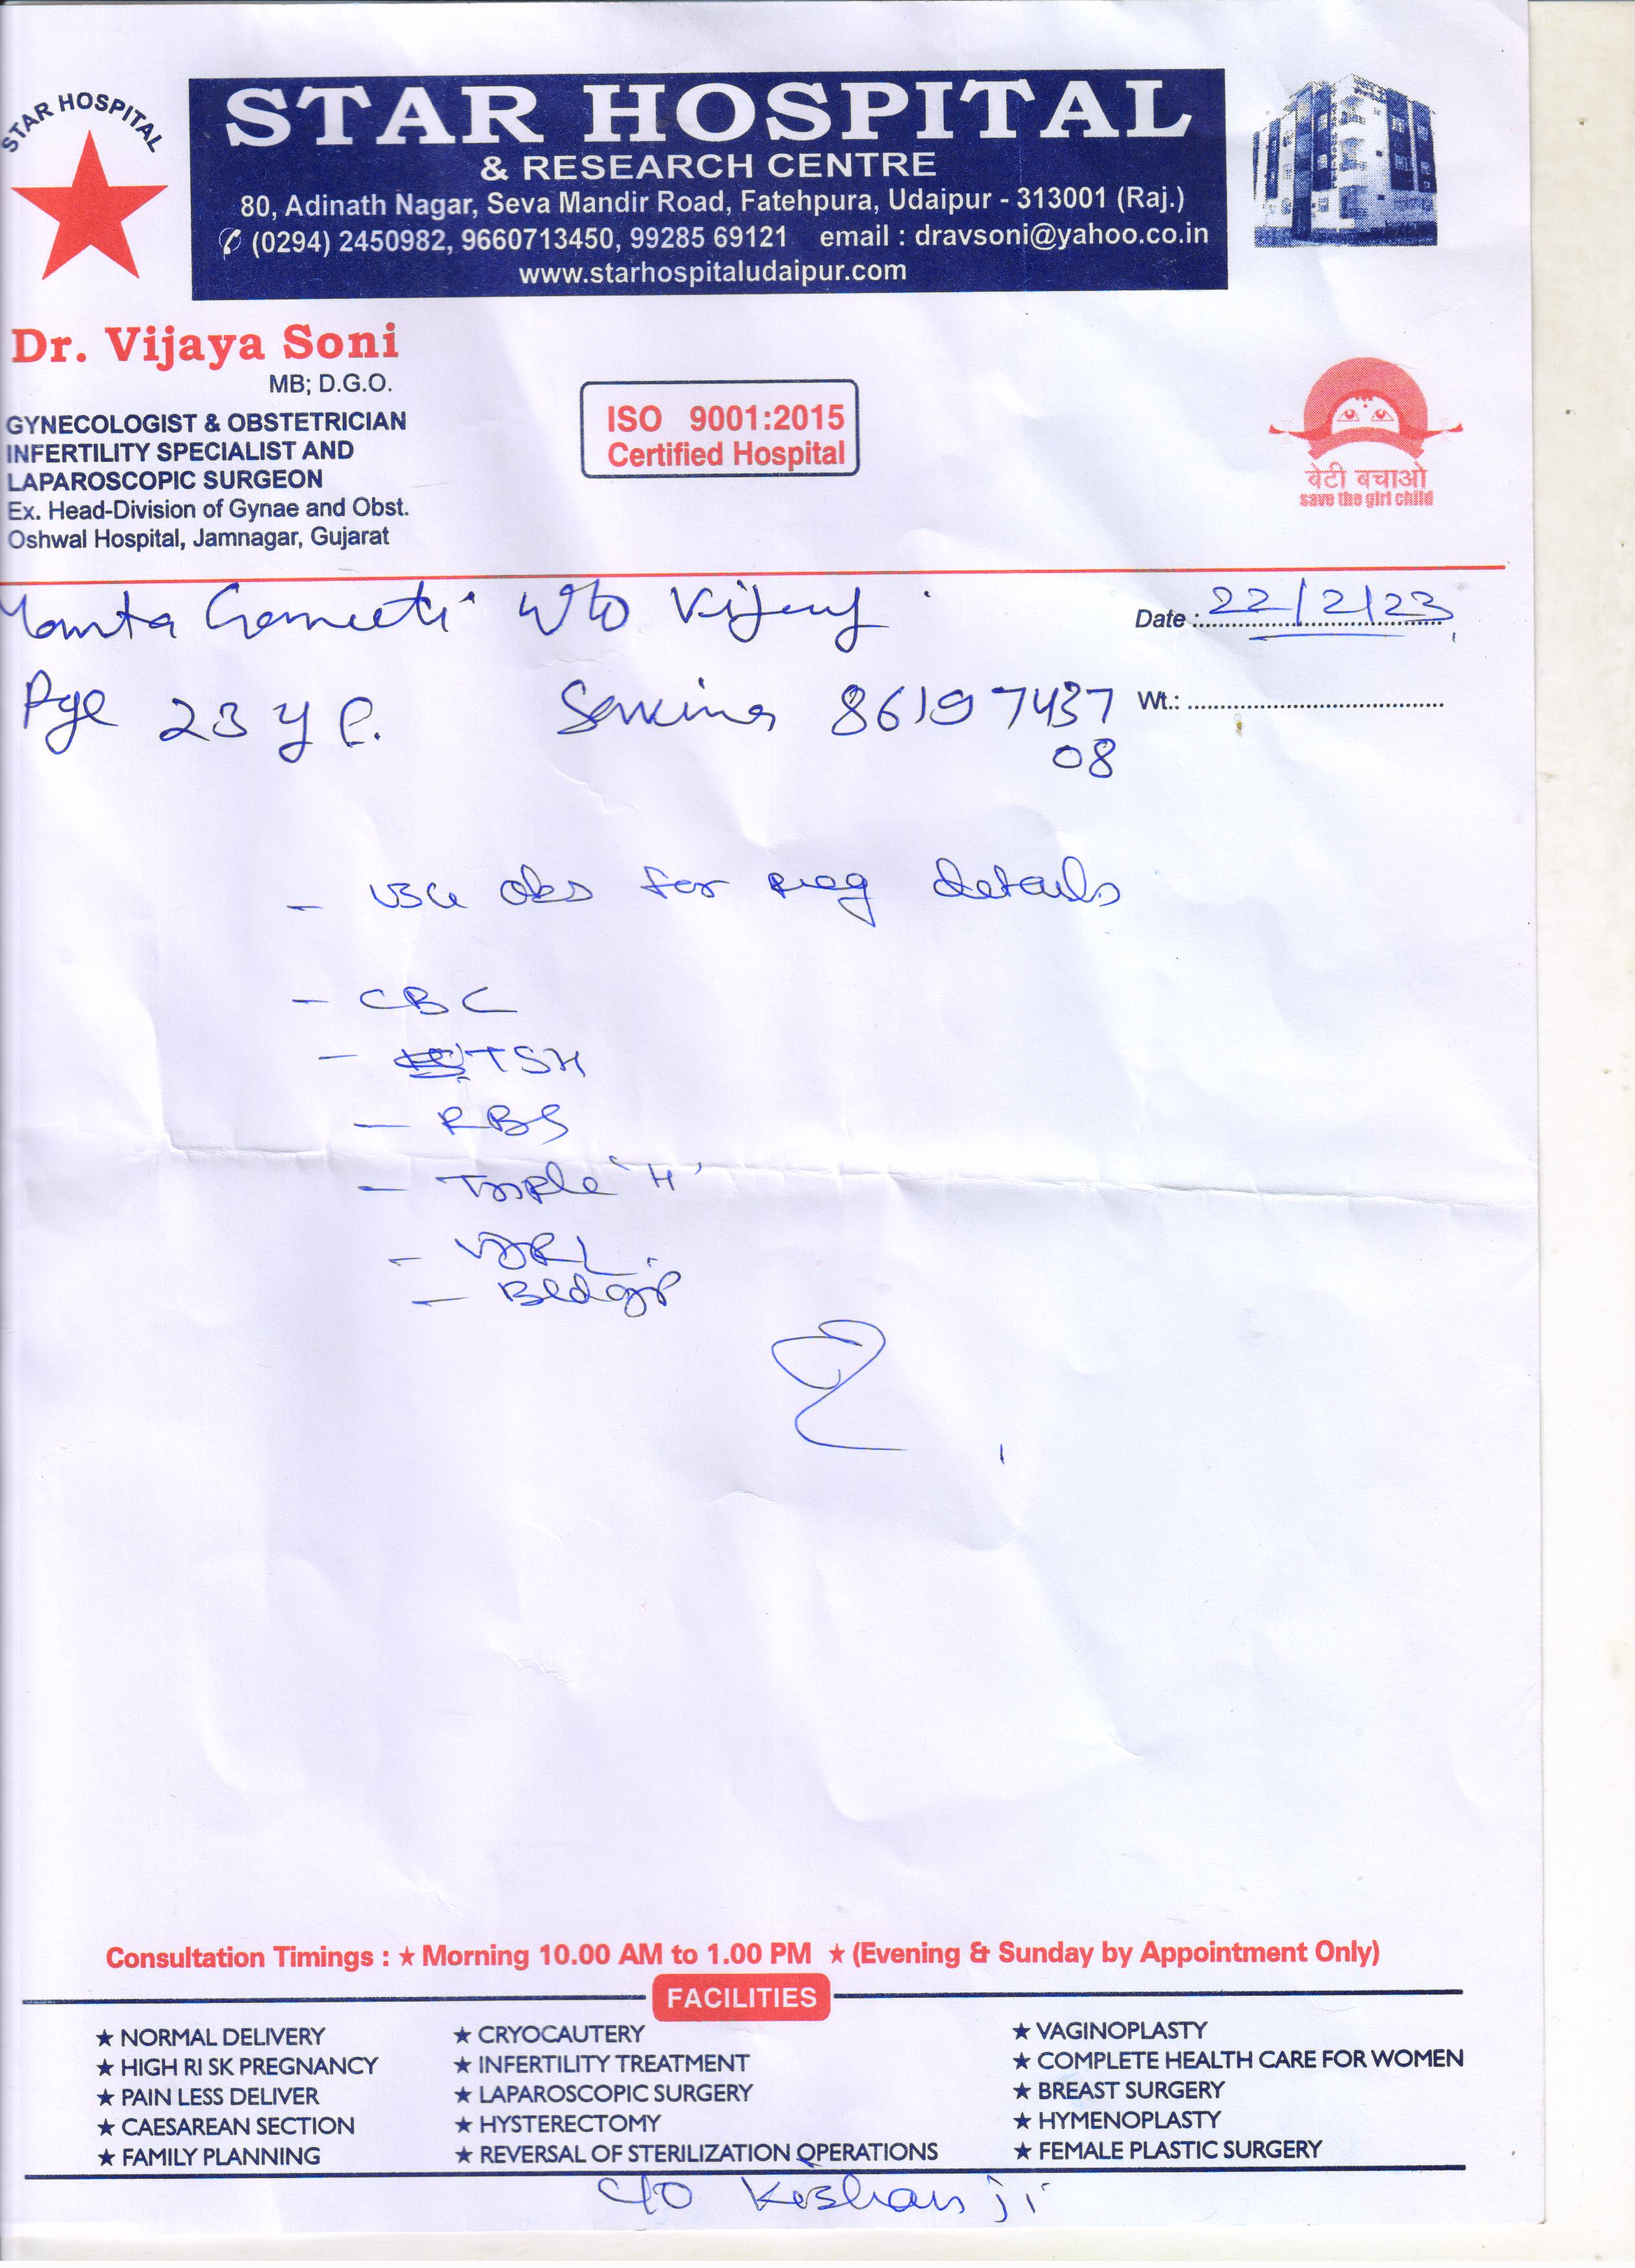 STAR HOSPITAL
STAR HOSPITAL
& RESEARCH CENTRE
80, Adinath Nagar, Seva Mandir Road, Fatehpura, Udaipur - 313001 (Raj.)
(0294) 2450982, 9660713450, 99285 69121 email : dravsoni@yahoo.co.in
www.starhospitaludaipur.com
Dr. Vijaya Soni
MB; D.G.O.
GYNECOLOGIST & OBSTETRICIAN
INFERTILITY SPECIALIST AND
LAPAROSCOPIC SURGEON
Ex. Head-Division of Gynae and Obst.
Oshwal Hospital, Jamnagar, Gujarat
ISO 9001:2015
Certified Hospital
बेटी बचाओ
save the girl child
W/o
Date : 22/2/23
Age 23 yr. 86197437 Wt.:
08
- USG obs for preg details
- CBC
- TSH
- RBS
- Triple 'H'
- VDRL.
- Bld gp
Consultation Timings : ★ Morning 10.00 AM to 1.00 PM ★ (Evening & Sunday by Appointment Only)
FACILITIES
★ NORMAL DELIVERY ★ CRYOCAUTERY ★ VAGINOPLASTY
★ HIGH RI SK PREGNANCY ★ INFERTILITY TREATMENT ★ COMPLETE HEALTH CARE FOR WOMEN
★ PAIN LESS DELIVER ★ LAPAROSCOPIC SURGERY ★ BREAST SURGERY
★ CAESAREAN SECTION ★ HYSTERECTOMY ★ HYMENOPLASTY
★ FAMILY PLANNING ★ REVERSAL OF STERILIZATION OPERATIONS ★ FEMALE PLASTIC SURGERY
C/o ji